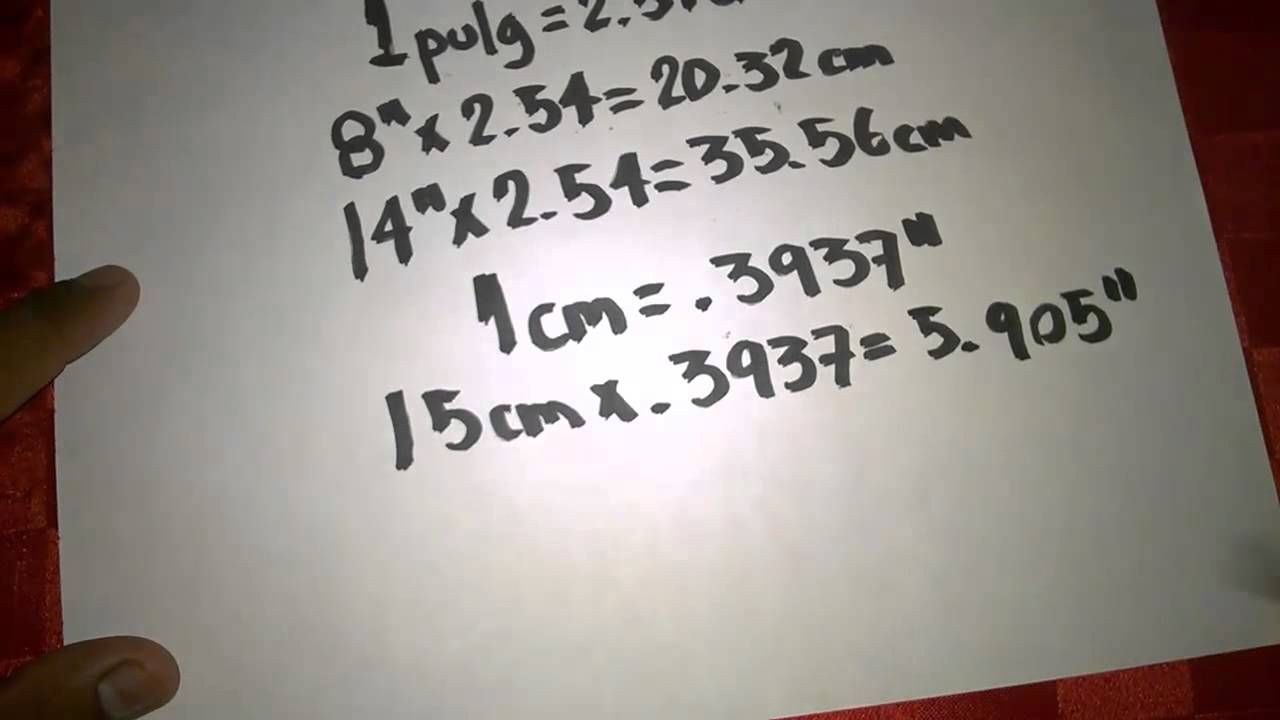 1 pulg = 2.54
8" x 2.54 = 20.32 cm
14" x 2.54 = 35.56 cm
1 cm = .3937"
15 cm x .3937 = 5.905"